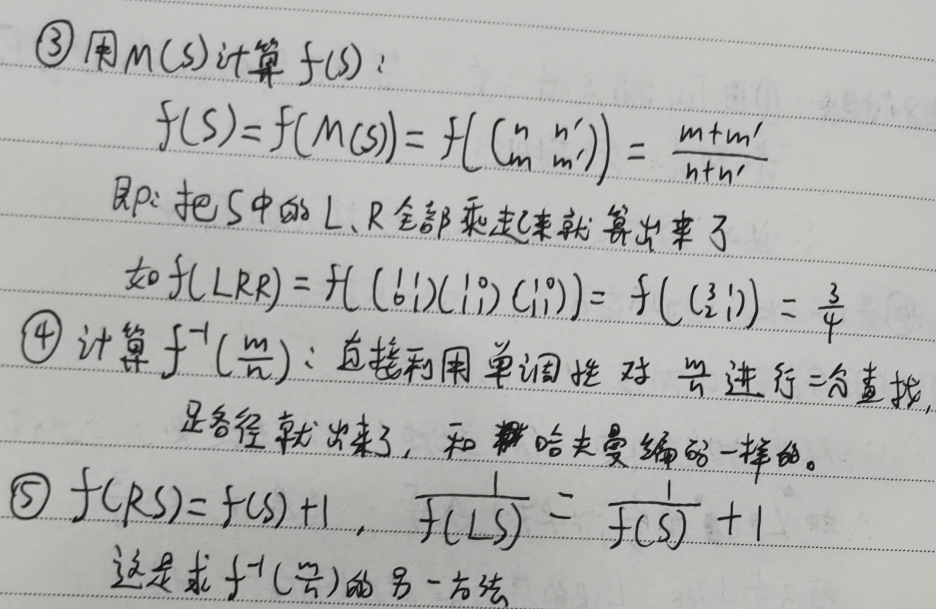 ③ 用M(S)计算f(S):
f(S)=f(M(S))=f((n n' m m'))=(m+m')/(n+n')
即:把S中的L、R全部乘起来就算出来了
如f(LRR)=f((1 1 0 1)(1 0 1 1)(1 0 1 1))=f((3 1 2 1))=3/4
④ 计算f⁻¹(m/n):直接利用单调性对m/n进行二分查找,
路径就出来了,和哈夫曼编码一样的。
⑤ f(RS)=f(S)+1, 1/f(LS)=1/f(S)+1
这是求f⁻¹(m/n)的另一方法